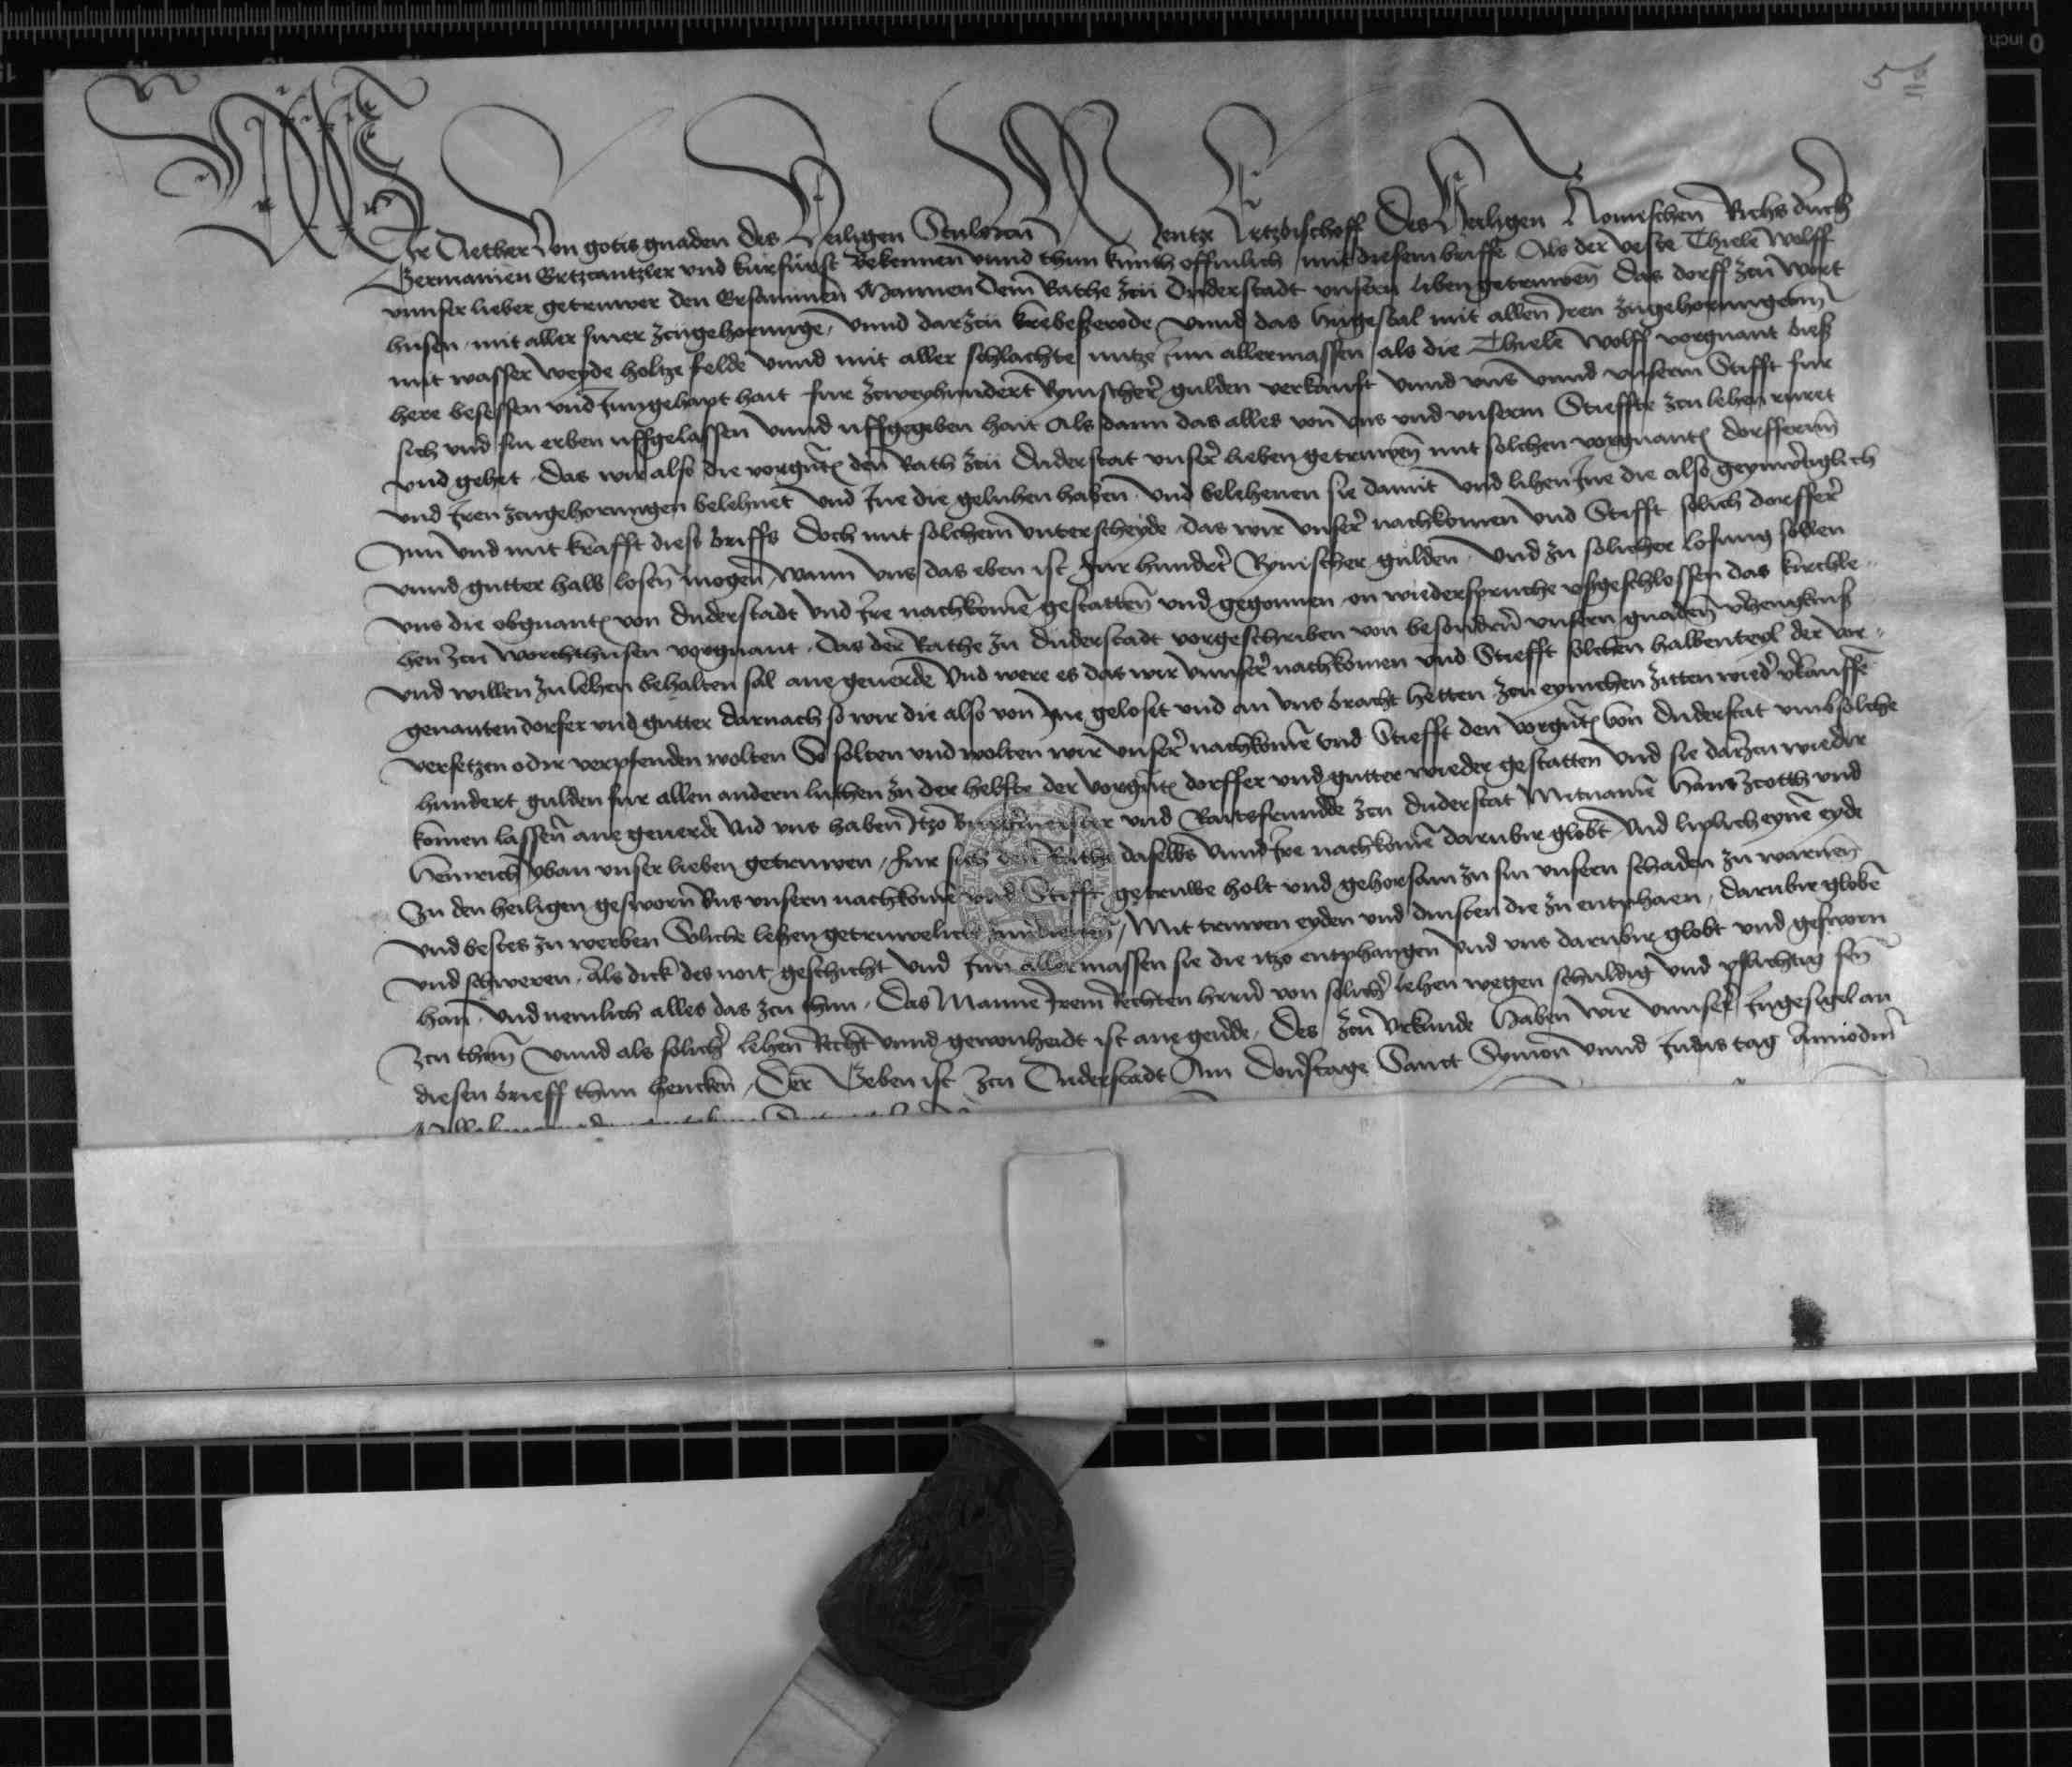 Wir Diether von gotis gnaden des Heiligen Stuls zcu Mentze Ertzbischoff Des Heiligen Romischen Richs durch
Germanien Ertzcantzler und kurfurst Bekennen vnnd thun kunth offinlich mit diesem briffe Als der veste Thiele Wolff
vnnser lieber getruwer den Ersammen Mannen Dem Rathe zcu Duderstadt unsern liben getruwen das dorff zcu Wort
husen mit aller siner zcugehorunge, vnnd darzcu krebeßerode vnnd das hugestal mit allen Iren zugehorungenn
mit wasser weyde holtze felde vnnd mit aller schlachte nutze Inn allermassen als die Thiele Wolff vorgnant dieß
here besessen vnd Inngehapt hait fure zcweyhundert Rynischer gulden verkauft vnnd vns vnnd vnserm Stifft fur
sich vnd sin erben uffgelassen vnnd uffgegeben hait Als dann das alles von vns und vnserm Stieffte zcu lehen ruret
vnd gehet. Das wir also die vorgnten den Rath zcu Duderstat vnser lieben getruwen mit solchen vorgnanten dorffernn
vnd Iren zcugehorungen belehnet vnd Ine die geluhen haben. vnd belehenen sie damit vnd lihen Ine die also geynwertiglich
Inn vnd mit krafft dieß briffs Doch mit solchem vnterscheyde. das wir vnser nachkomen vnd Stifft solich dorffer
vnnd gutter halb losen mogen, wann vns das eben ist fur hundert Rynischer gulden. vnd zu solicher losung sollen
vns die obgnanten von Duderstadt vnd Ire nachkomen gestatten vnd gegonnen on wiederspruche vßgeschlossen das kirchle-
hen zcu Worchthusen vorgnant. das der Rathe zu Duderstadt vorgeschriben von besondern vnsern gnaden verhengkniß
vnd willen zu lehen behalten sal ane geuerde Vnd were es das wir vnnser nachkomen vnd Stiefft solchen halbenteyl der vor-
genanten dorfer vnd gutter darnach so wir die also von Ine geloset vnd an vns bracht hetten zcu eynichen zitten wieder verkauffen
versetzen oder verpfenden wolten So solten vnd wolten wir vnser nachkomen vnd Stiefft den vorgnten von Duderstat vmb solche
hundert gulden fur allen andern luthen zu der helfte der vorgnten dorffer vnd gutter wieder gestatten vnd sie darzcu wieder
komen lassen ane geuerde Vnd vns haben Itzo Burgermeister vnd Raitsfrundde zcu Duderstat Mitnamen Hans Zcotth vnd
Heinrich vban vnser lieben getruwen, fur sich den Rathe daselbs vnnd Ire nachkomen darubir globt vnd liplich eynen eyde
Zu den heiligen gesworn vns vnsern nachkomen vnd Stifft getruwe holt vnd gehorsam zu sin vnsern schaden zu warnen
vnd bestes zu werben Soliche lehen getruwelich zcuuerdienen, Mit truwen eyden vnd dinsten die zu entphaen, darubir globen
vnd schweren. Als dick des noit geschicht vnd Inn allermassen sie die itzo entphangen vnd vns darubir globt vnd gesworn
han. vnd nemlich alles das zcu thun. Das Manne Irem Rechten hern von solicher lehen wegen schuldig vnd pflichtig sein
zcu thun vnnd als solicher lehen Recht vnnd gewonheidt ist ane geuerde. Des zcu Vrkunde haben wir vnnser Ingesigel an
diesen brieff thun hencken, Der Geben ist zcu Duderstadt Am Donrstage Sanct Symon vnnd Judas tag Annodm